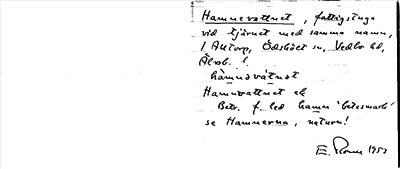 Hamnevattnet, fattigstuga
vid tjärnet med samma namn,
i Antorp, Ödsköst sn, Vedbo hd,
Älvsb. l.
hàmnǝvátnǝt
Hamnvattnet ek
Betr. f. led hamn 'betesmark'
se Hamnerna, naturn!
E. 1953